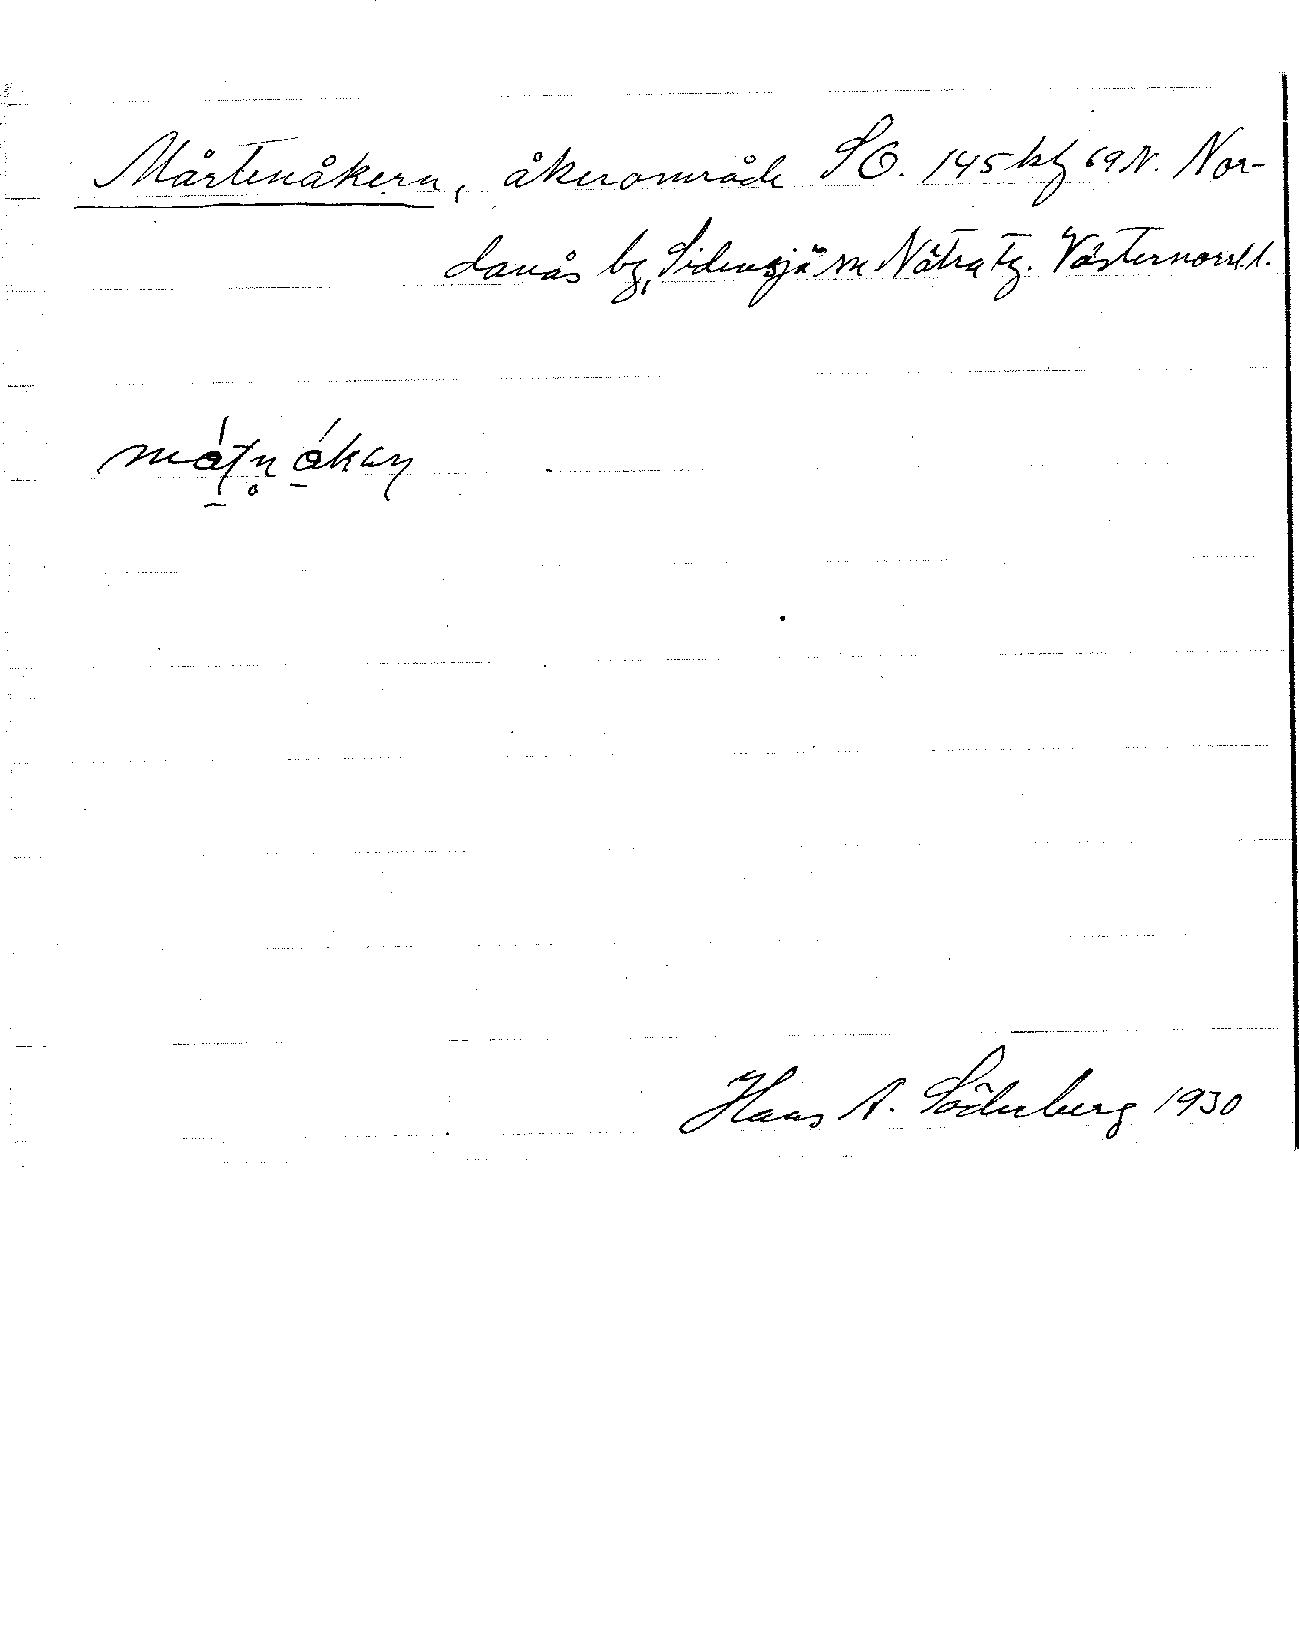 Mårtenåkern, åkerområde SO. 145 bf 69 N. Nor-
danås by, Sidensjö sn Nätra tg. Västernorrl. l.
Hans A. Söderberg 1930